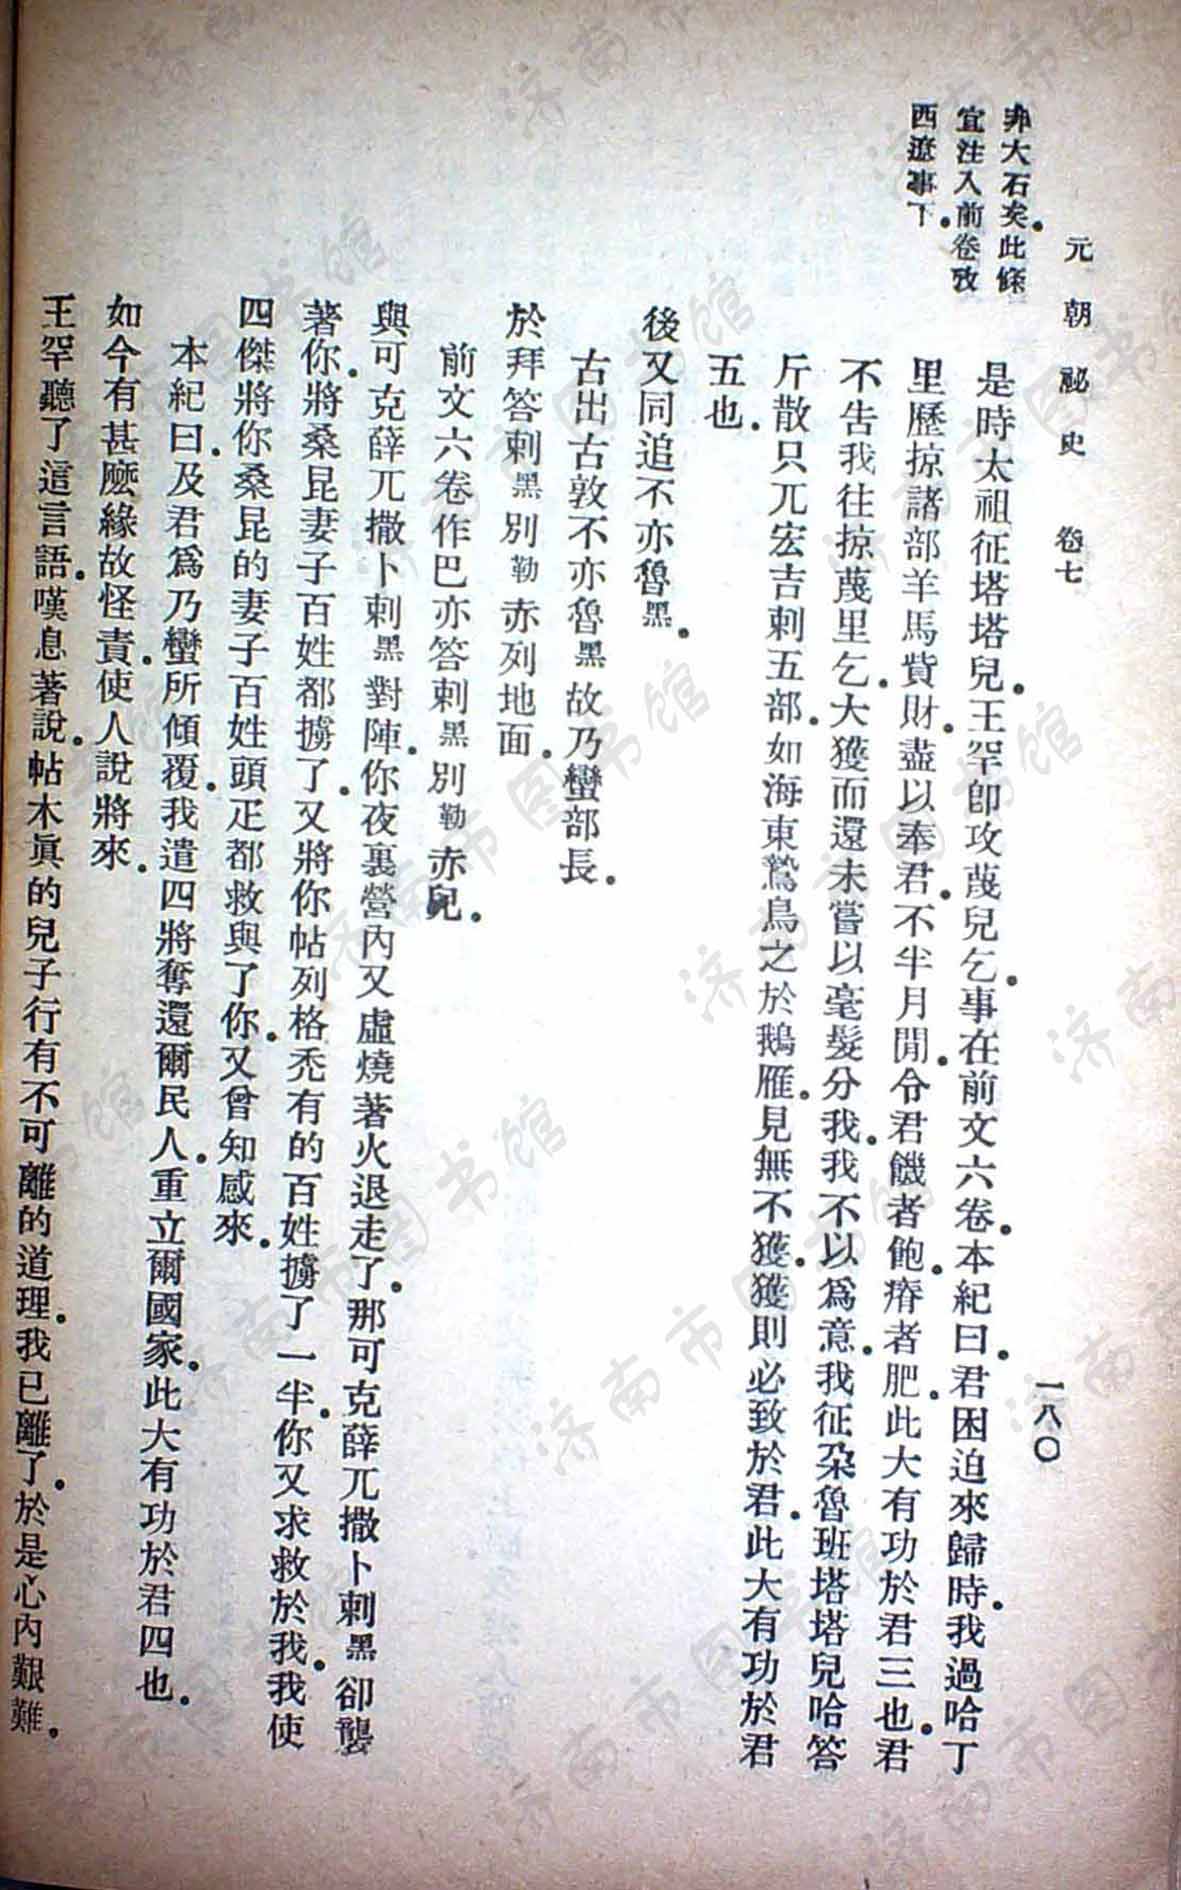 元朝祕史　卷七　一八〇
非大石矣。此條
宜注入前卷攷
西遼事下。
是時太祖征塔塔兒。王罕卽攻蔑兒乞。事在前文六卷。本紀曰。君困迫來歸時。我過哈丁
里歷掠諸部羊馬貲財。盡以奉君。不半月閒。令君饑者飽。瘠者肥。此大有功於君三也。君
不告我往掠蔑里乞。大獲而還未嘗以毫髮分我。我不以爲意。我征朶魯班塔塔兒哈答
斤散只兀宏吉剌五部。如海東鷙鳥之於鵝雁。見無不獲。獲則必致於君。此大有功於君
五也。
後又同追不亦魯黑。
古出古敦不亦魯黑故乃蠻部長。
於拜答剌黑別勒赤列地面。
前文六卷作巴亦答剌黑別勒赤兒。
與可克薛兀撒卜剌黑對陣。你夜裏營內又虛燒著火退走了。那可克薛兀撒卜剌黑卻襲
著你。將桑昆妻子百姓都擄了。又將你帖列格禿有的百姓擄了一半。你又求救於我。我使
四傑將你桑昆的妻子百姓頭疋都救與了你。又曾知感來。
本紀曰。及君爲乃蠻所傾覆。我遣四將奪還爾民人。重立爾國家。此大有功於君四也。
如今有甚麽緣故怪責。使人說將來。
王罕聽了這言語。嘆息著說。帖木眞的兒子行有不可離的道理。我已離了。於是心內艱難。